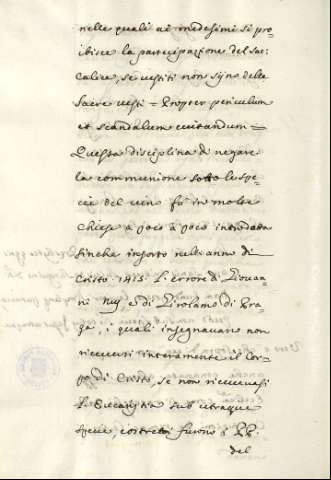 nelle quali ai medesimi si pro-
ibisce la partecipazione del sac.
Calice, se vestiti non sijno delle
Sacre vesti = Propter periculum
et scandalum evitandum =
Questa disciplina di negare
la communione sotto le spe-
cie del vino fù in molte
Chiese à poco à poco introdotta
finche insorto nell'anno di
Cristo 1415 l'errore di Giovan-
ni Hus, e di Girolamo di Pra-
ga, i quali insegnavano non
riceversi interamente il Cor-
po di Cristo, se non ricevevasi
l'Eucaristia sub utraque
specie, costretti furono i PP.
del